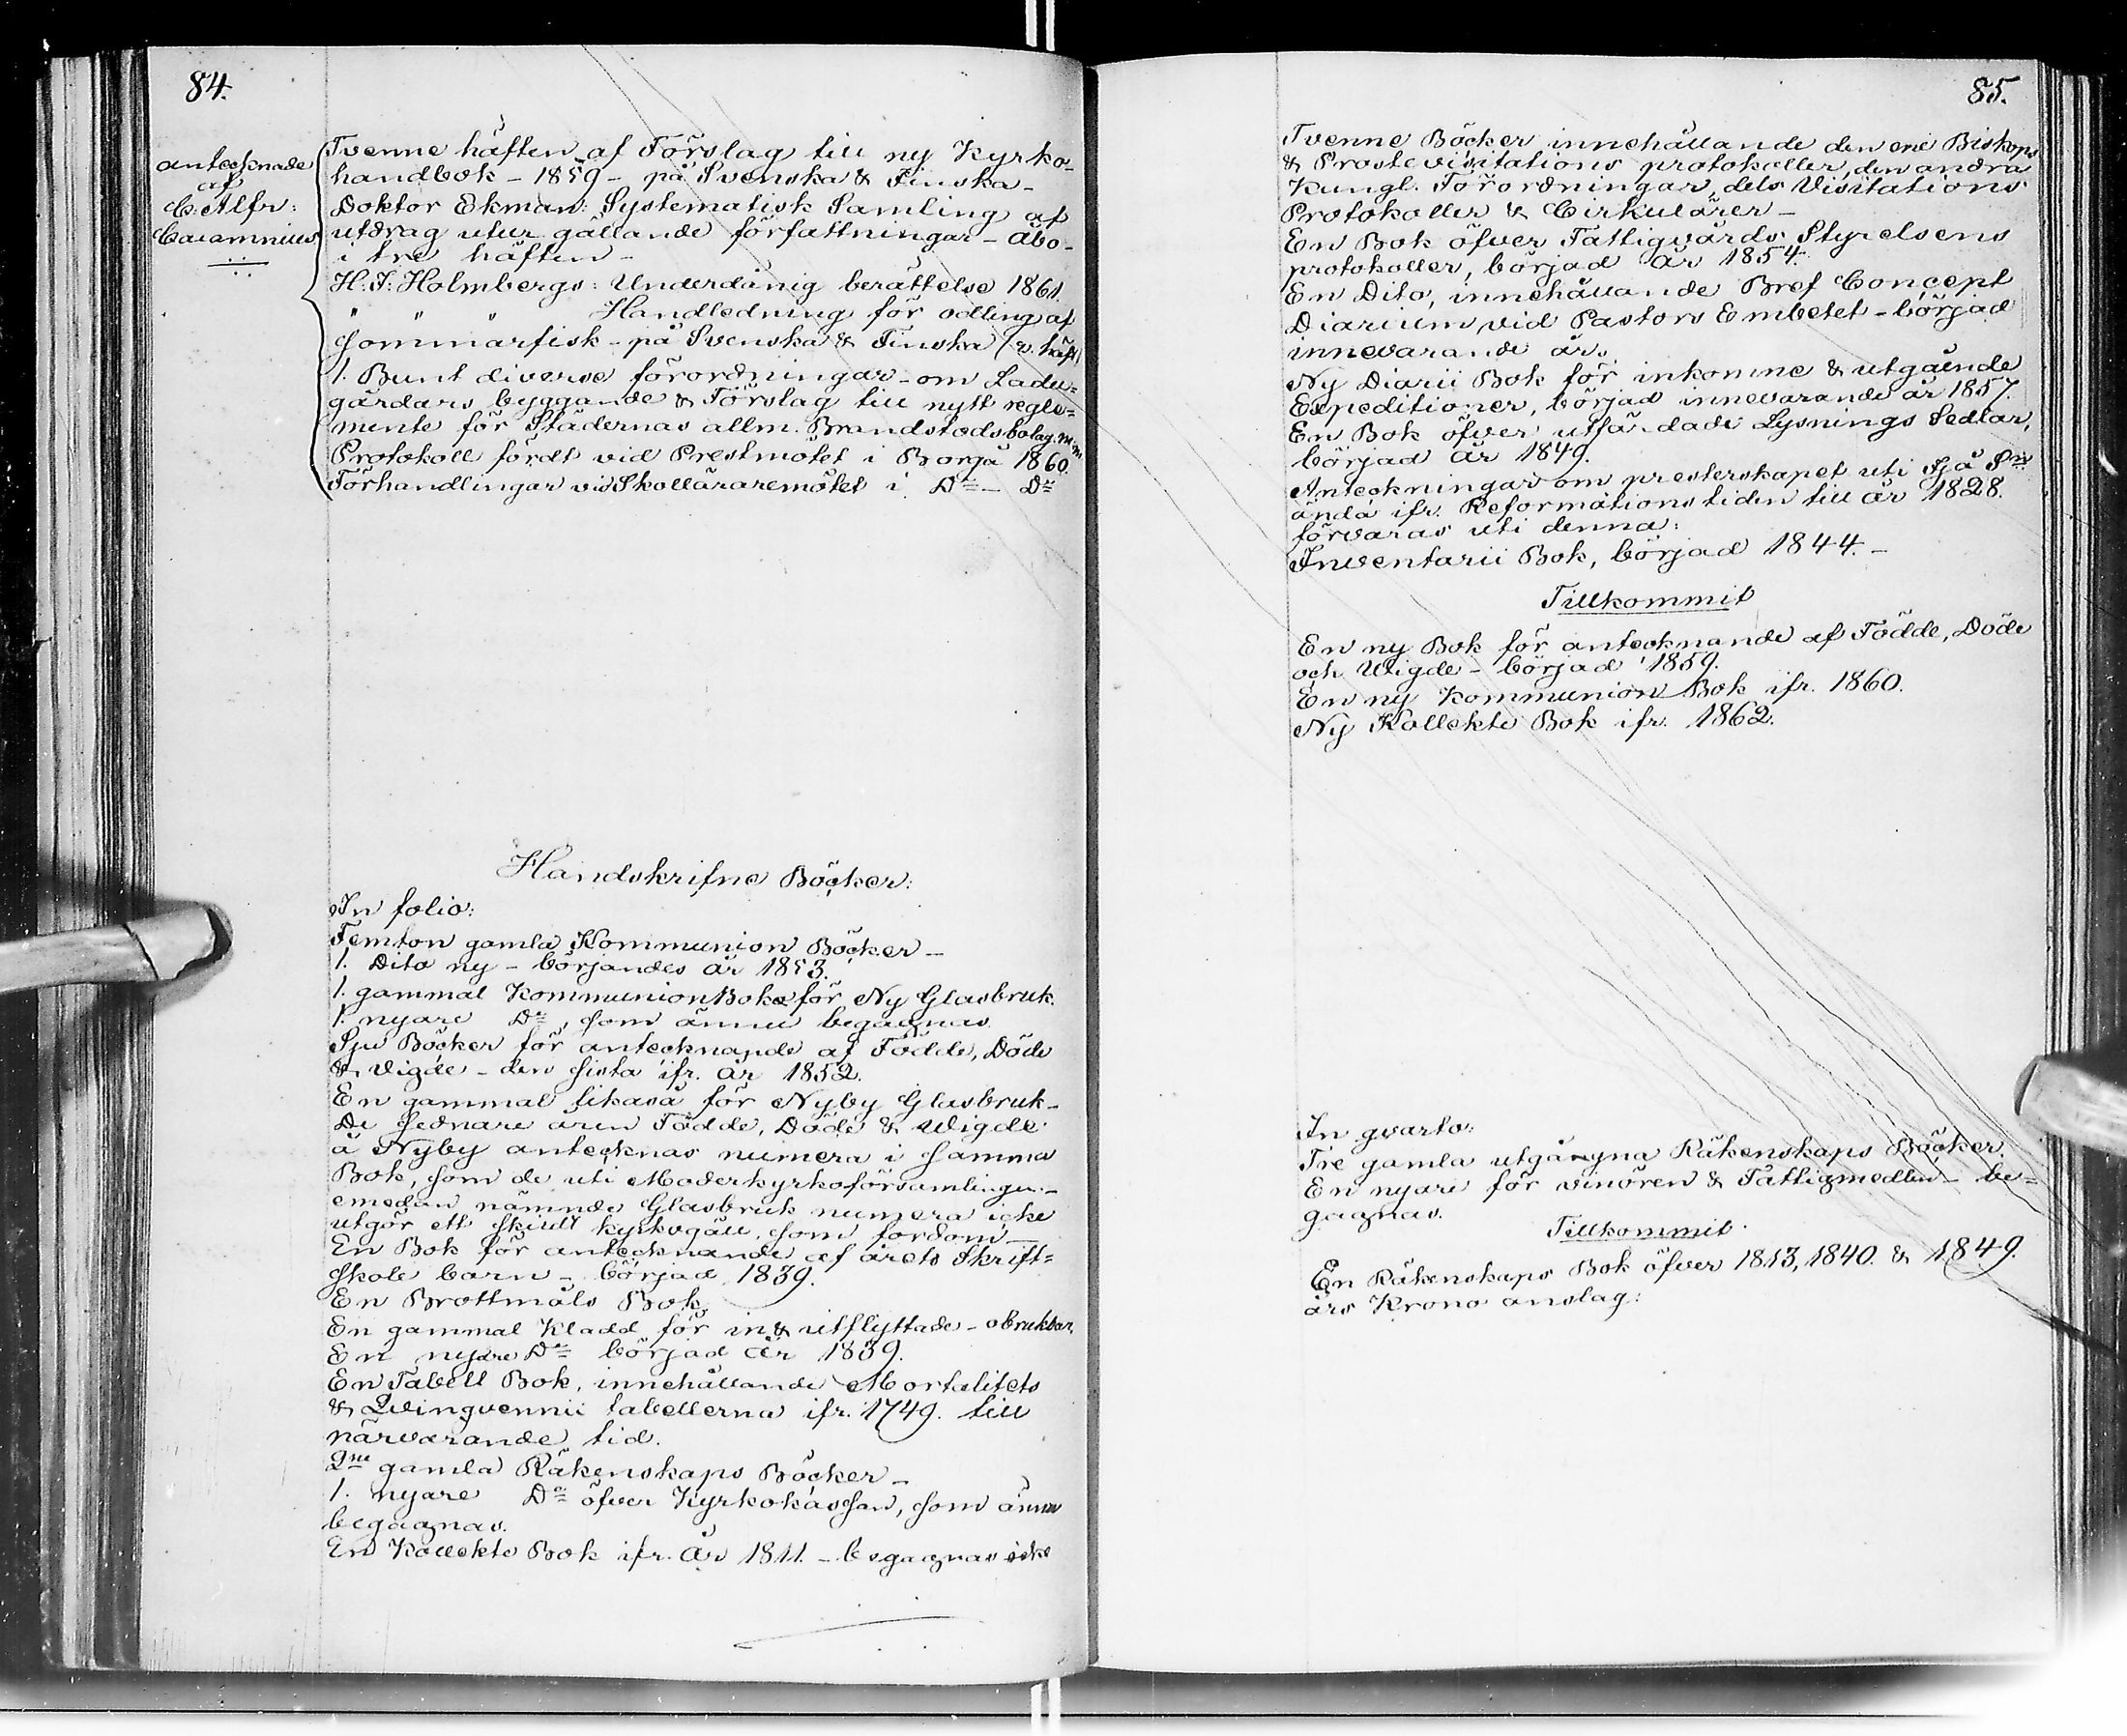 84.
antecknade
af
C. Alfr:
Caiamnius
Tvenne häften af Förslag till ny Kyrko-
handbok - 1859 - på Svenska & Finska -
Doktor Ekman: Systematisk Samling af
utdrag utur gällande författningar - Åbo -
i tre häften -
H. J: Holmbergs: Underdånig berättelse 1861.
" " " Handledning för odling af
Sommarfisk - på Svenska & Finska (2. häft)
1. Bunt diverse förordningar - om Ladu=
gårdars byggande & Förslag till nytt regle=
mente för Städernas allm. Brandstodsbolag. m.m
Protokoll fördt vid Prestmötet i Borgå 1860.
Förhandlingar vid Skolläraremötet i Do - Do
Handskrifne Böcker:
In folio:
Femton gamla Kommunion Böcker -
1. Dito ny - börjandes år 1853.
1. gammal Kommunion Bok för Ny Glasbruk.
1. nyare Do, som ännu begagnas.
Sju Böcker för antecknande af Födde, Döde
& Vigde - den sista ifr. år 1852.
En gammal likaså för Nyby Glasbruk -
De sednare åren Födde, Döde & Wigde
å Nyby antecknas numera i samma
Bok, som de uti Moderkyrkoförsamlingen -
emedan nämnde Glasbruk numera icke
utgör ett skildt kyrkogäll, som fordom -
En Bok för antecknande af årets Skrift=
skole barn - börjad 1839.
En Brottmåls Bok
En gammal Kladd för in & utflyttade - obrukbar.
En nyare Do börjad år 1839.
En Tabell Bok, innehållande Mortalitets
& Qvinqvennii tabellerna ifr. 1749. till
närvarande tid.
2ne gamla Räkenskaps Böcker -
1. nyare Do öfver Kyrkokassan, som ännu
begagnas.
En Kollekte Bok ifr. År 1811. - begagnas icke
85.
Tvenne Böcker innehållande den ene Biskops
& Prostevisitations protokoller, den andra
Kungl. Förordningar, dels Visitations
Protokoller & Cirkulärer -
En Bok öfver Fattigvårds Styrelsens
protokoller, börjad år 1854.
En Dito, innehållande Bref Concept
Diarium vid Pastors Embetet - börjad
innevarande år.
Ny Diarii Bok för inkomne & utgående
Expeditioner, börjad innevarande år 1857.
En Bok öfver utfärdade Lysnings Sedlar,
börjad år 1849.
Anteckningar om presterskapet uti Sjå Sn
ända ifr. Reformationstiden till år 1828.
förvaras uti denna:
Inventarii Bok, börjad 1844. -
Tillkommit
En ny Bok för antecknande af Födde, Döde
och Wigde - börjad 1859.
En ny Kommunion Bok ifr. 1860.
Ny Kollekte Bok ifr. 1862.
In qvarto:
Tre gamla utgångna Räkenskaps Böcker.
En nyare för vinören & Fattigmedlen - be=
gagnas.
Tillkommit.
En Räkenskaps Bok öfver 1813, 1840. & 1849.
års Krono anslag: